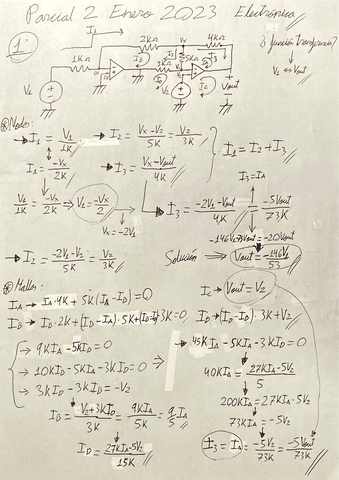 Parcial 2 Enero 2023 Electrónica
1:
¿función transferencia?
V₁ ↔ Vout
I₁
2KΩ
Vx
4KΩ
1KΩ
5KΩ
3KΩ
I₃
V₁
V₂
Vout
⊗ Nodos:
→ I₁ = V₁/1K → I₂ = (Vx-V₂)/5K = V₂/3K
I₁ = I₂ + I₃
I₁ = -Vx/2K → I₃ = (Vx-Vout)/4K
I₃ = IA
V₁/1K = -Vx/2K → V₁ = -Vx/2
→ Vx = -2V₁
I₃ = (-2V₁-Vout)/4K = -5Vout/73K
-146V₁-73Vout = -20Vout
→ I₂ = (-2V₁-V₂)/5K = V₂/3K
Solución → Vout = -146V₁/53
⊗ Mallas:
IC → Vout = V₂
IA → IA·4K + 5K(IA-ID) = 0
IB → IB·2K + (ID-IA)·5K + (ID-IB)·3K = 0
ID → (ID-IB)·3K + V₂
→ 9KIA - 5KID = 0
→ 10KID - 5KIA - 3KID = 0
→ 3KID - 3KIB = -V₂
→ 45KIA - 5KIA - 3KID = 0
40KIA = (27KIA - 5V₂)/5
200KIA = 27KIA - 5V₂
73KIA = -5V₂
IB = (V₂+3KID)/3K = 9KIA/5K = 9/5 IA
ID = (27KIA-5V₂)/15K
I₃ = IA = -5V₂/73K = -5Vout/73K